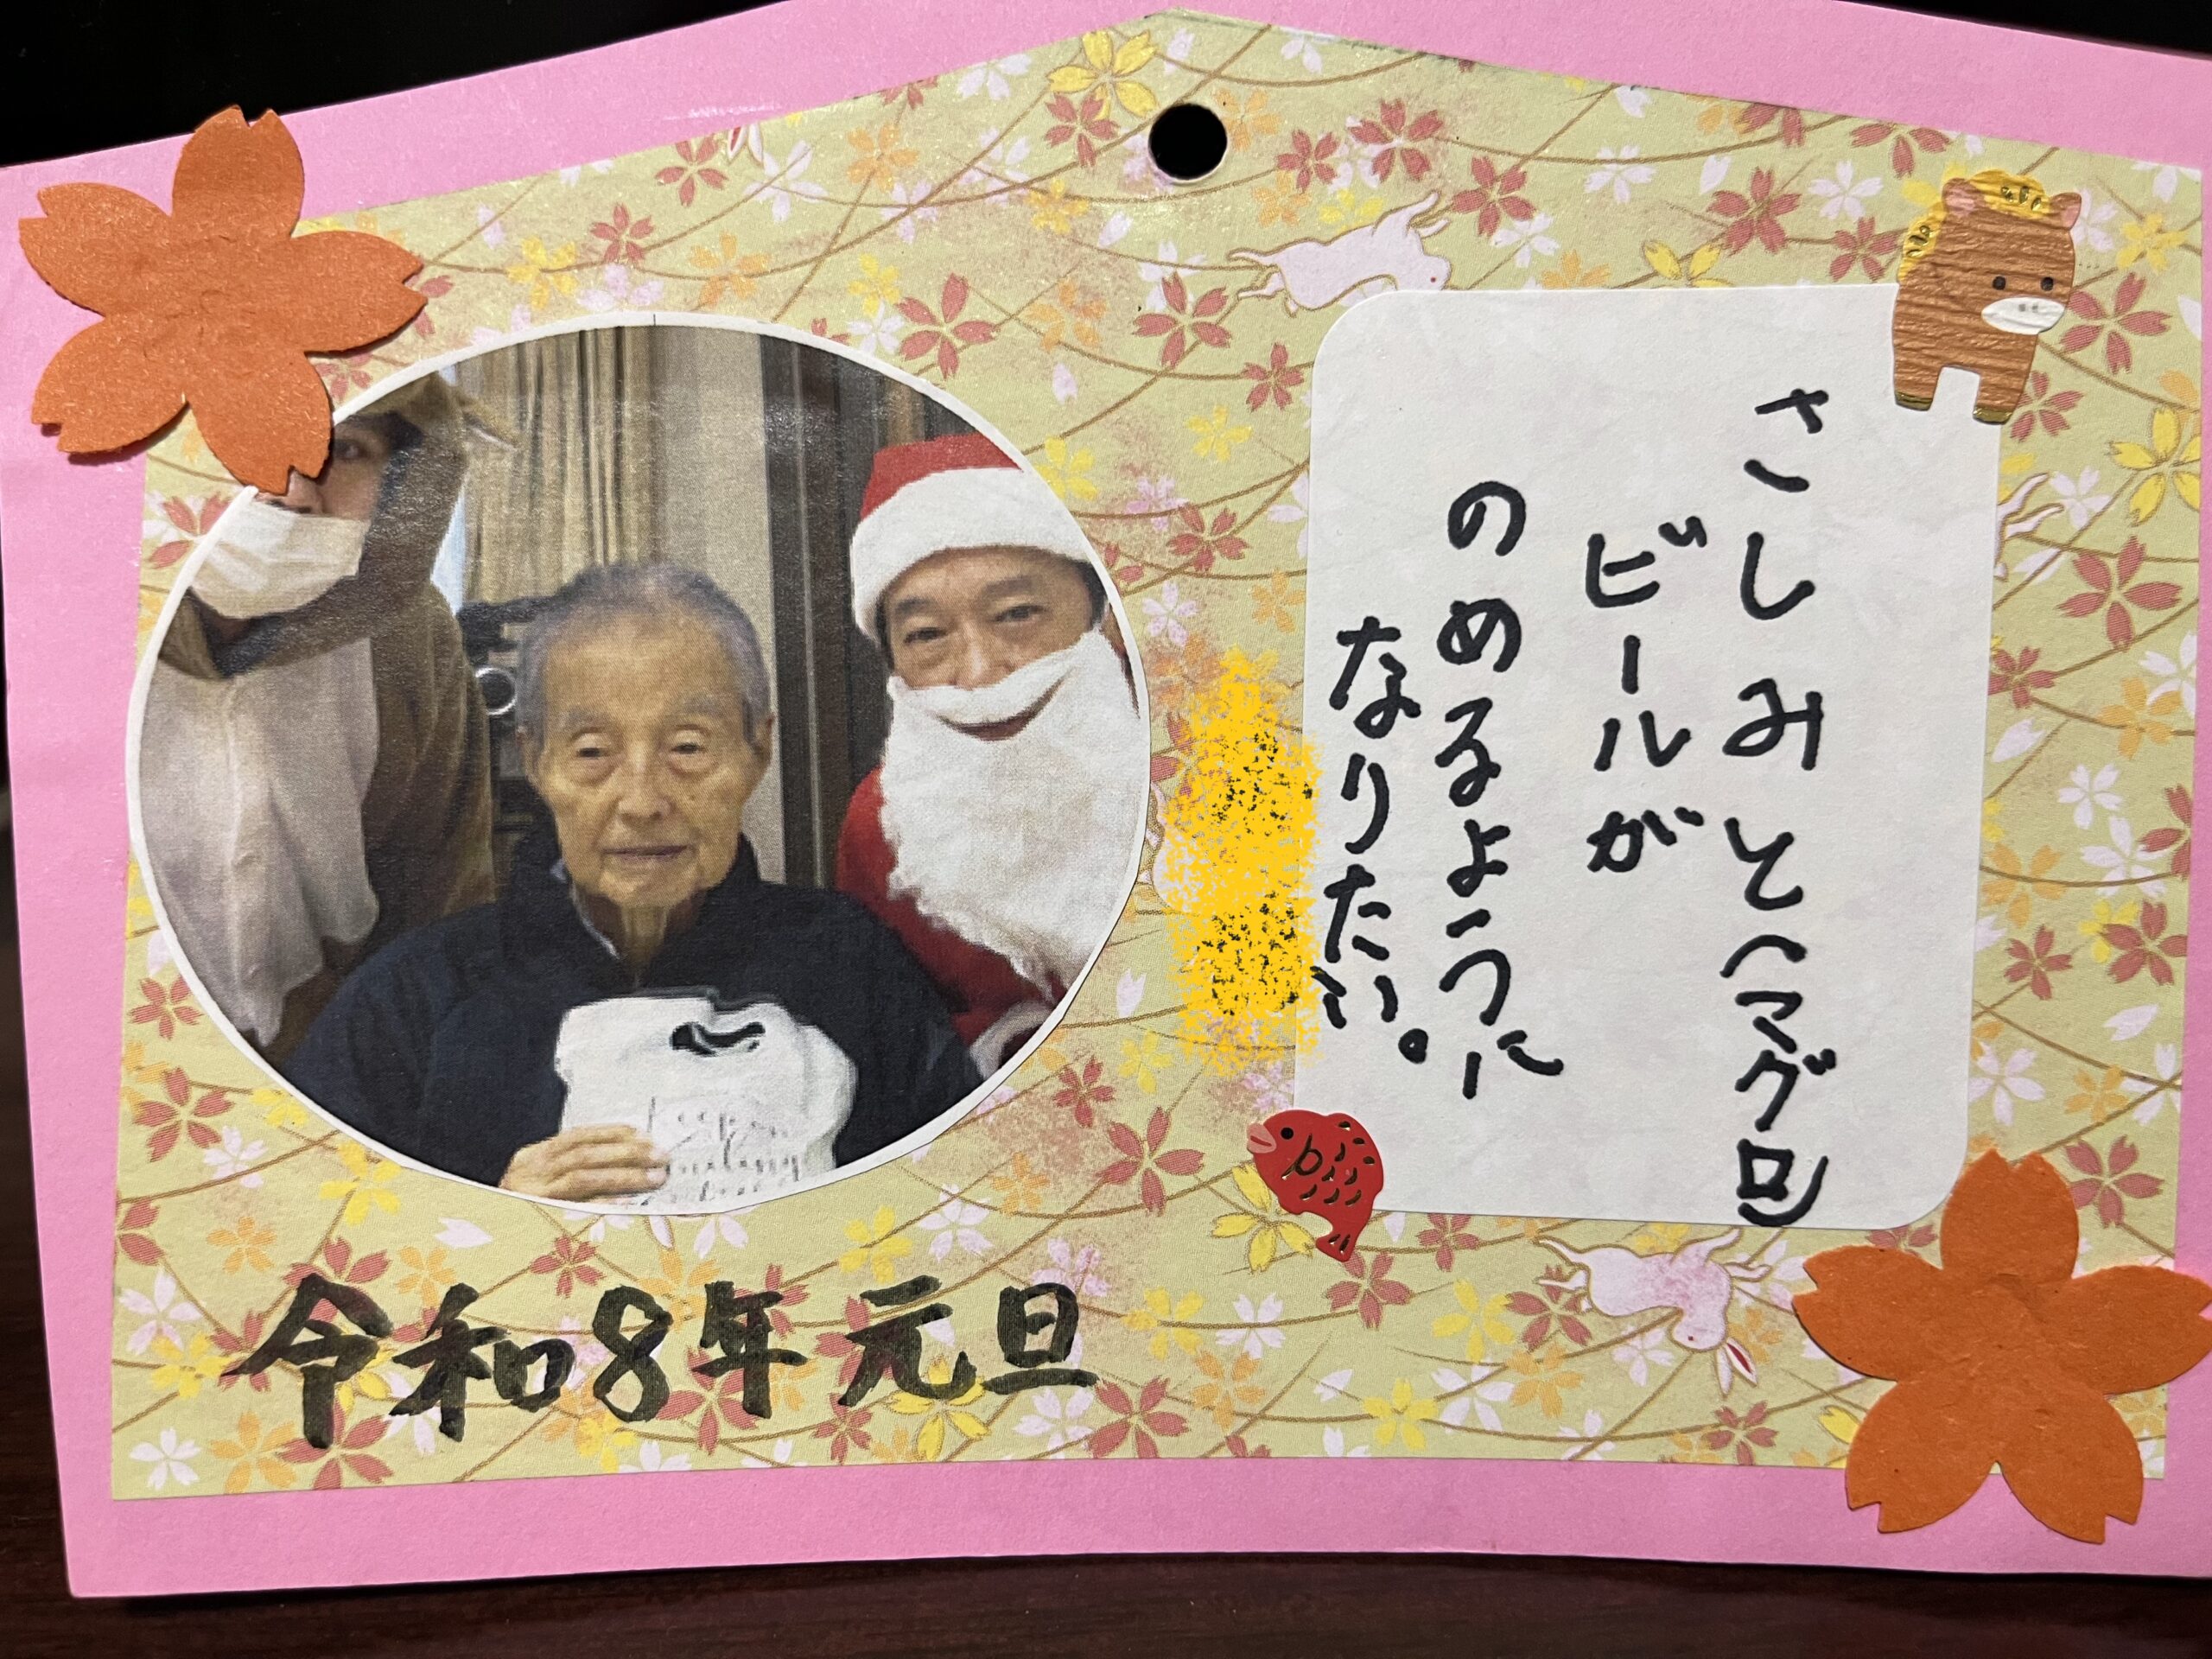 さしみと(マグロ)
ビールが
のめるように
なりたい。
令和8年元旦